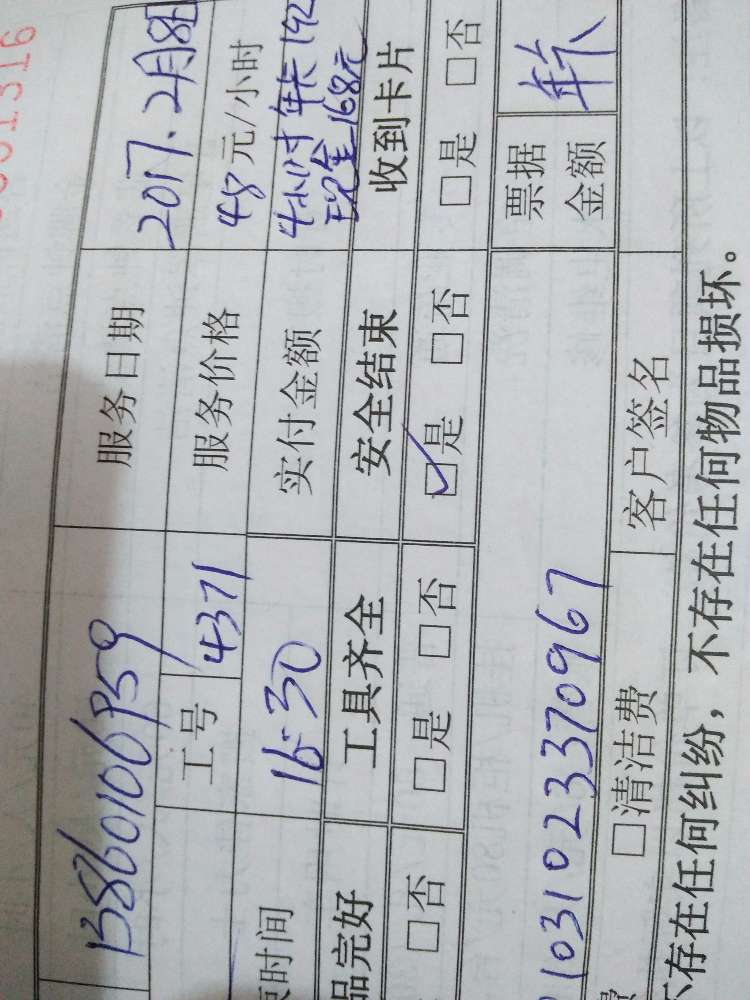 13860106959 服务日期 2017.2月8日
工号 4371 服务价格 48元/小时
束时间 16:30 实付金额 4小时年卡192
现金168元
品完好 工具齐全 安全结束 收到卡片
□否 □是 □否 ☑是 □否 □是 □否
1031023370967 票据金额 年卡
费 □清洁费 客户签名
不存在任何纠纷，不存在任何物品损坏。